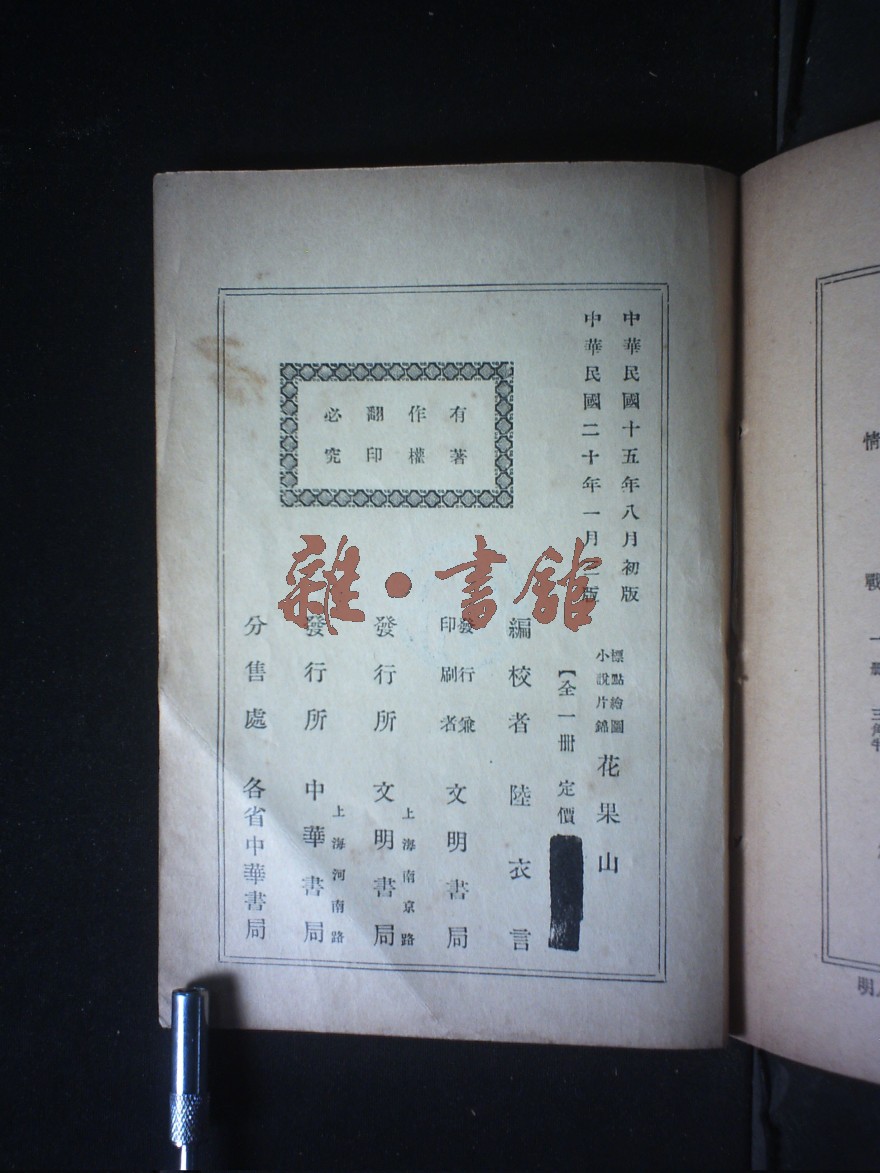 中華民國十五年八月初版
中華民國二十年一月二版
有著
作權
翻印
必究
標點繪圖
小說片錦
花果山
【全一冊 定價
編校者 陸衣言
發行兼
印刷者
文明書局
上海南京路
發行所 文明書局
上海河南路
發行所 中華書局
分售處 各省中華書局
雜·書館
情
戰
一
三角
明